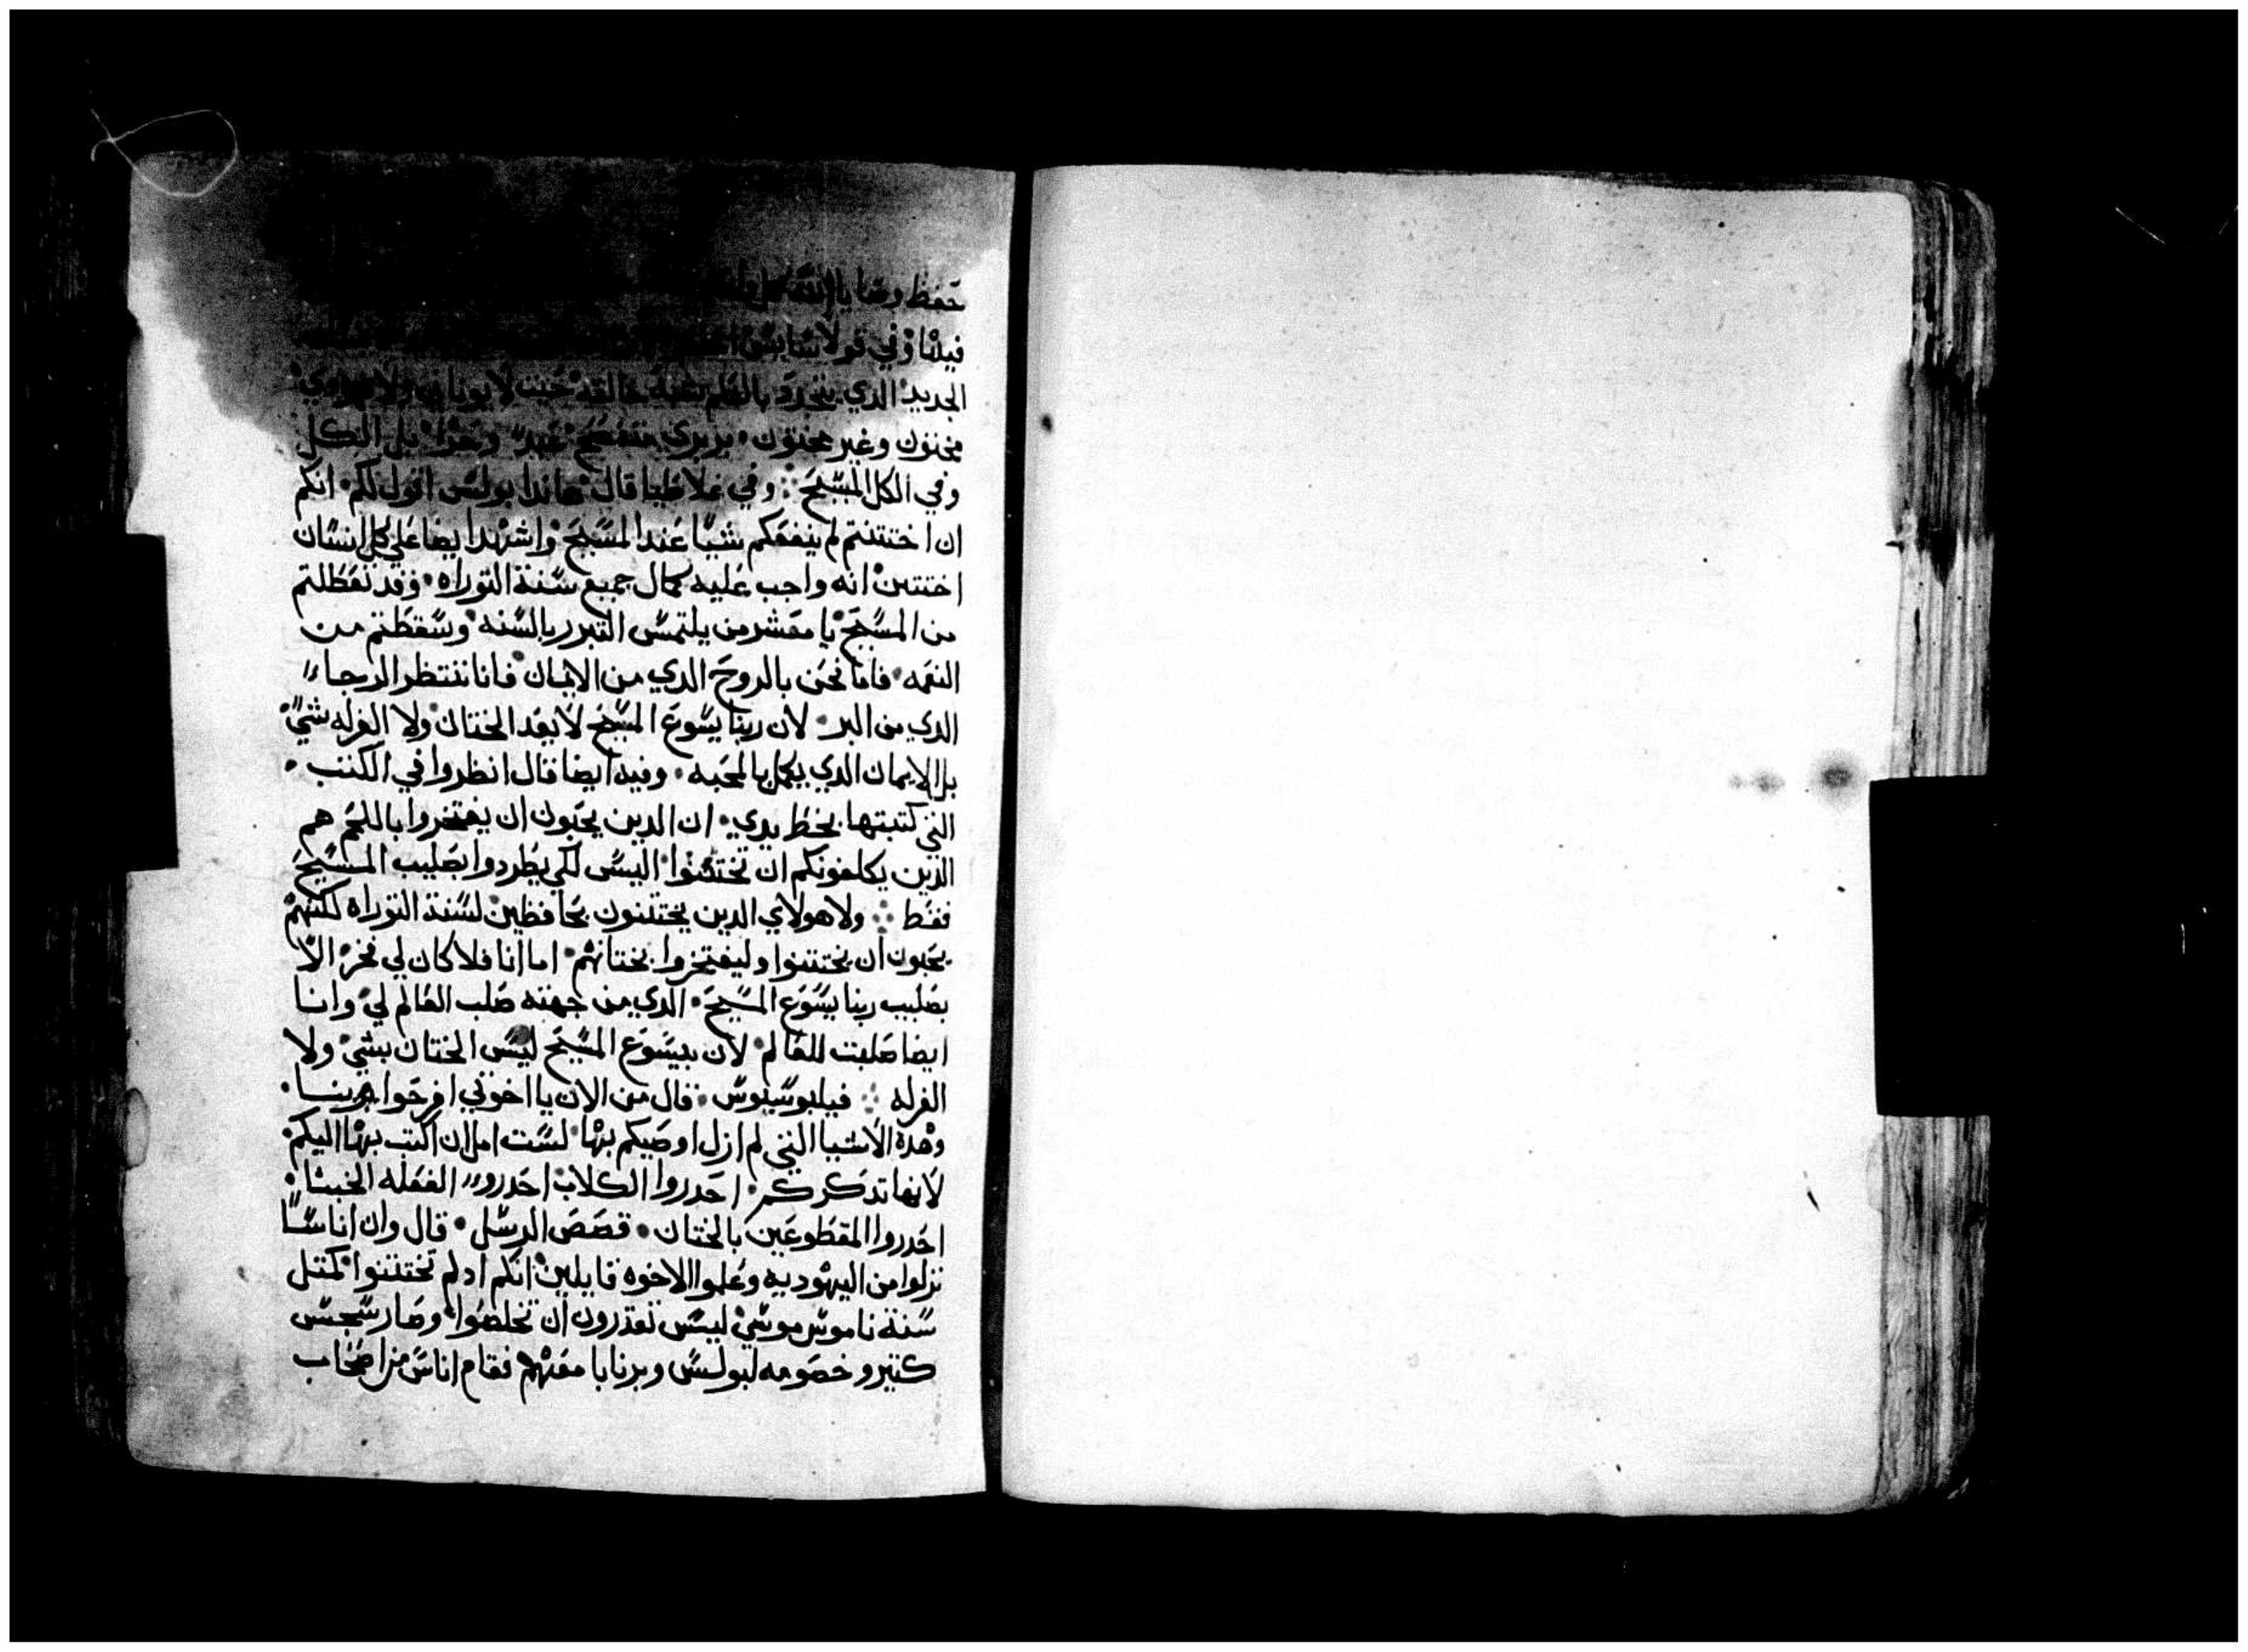 حفظ وصايا الله
فيلنا وفي قولاسايس
الجديد الذي يتجدد بالعلم بشبه خالقه حيث لا يوناني ولا يهودي
مختون وغير مختون بربري عبد بل الكل
وفي الكل المسيح وفي غلاطيا قال هاندا بولس اقول لكم انكم
ان اختتنتم لم ينفعكم شيا عند المسيح واشهد ايضا على كل انسان
اختتن انه واجب عليه كمال جميع سنة التوراه وقد تعطلتم
من المسيح يا معشر من يلتمس التبرر بالسنه وسقطتم من
النعمه فاما نحن بالروح الدي من الايمان فانا ننتظر الرجاء
الدي من البر لان ربنا يسوع المسيح لا يعد الختان ولا الغرله شي
بل الايمان الدي يكمل بالمحبه وفيه ايضا قال انظروا في الكتب
التي كتبتها بخط يدي ان الدين يحبون ان يفتخروا باللحم هم
الدين يكلفونكم ان تختتنوا اليس لكي يطردوا بصليب المسيح
فقط ولا هولاي الدين يختتنون بحافظين لسنة التوراه لكنهم
يحبون ان يختتنوا وليفتخروا بختانهم اما انا فلا كان لي فخر الا
بصليب ربنا يسوع المسيح الدي من جهته صلب العالم لي وانا
ايضا صلبت للعالم لان بيسوع المسيح ليس الختان بشي ولا
الغرله فيلبوسيوس قال من الان يا اخوتي افرحوا بربنا
وهده الاشيا التي لم ازل اوصيكم بها لست امل ان اكتب بها اليكم
لانها تدكركم احدروا الكلاب احدروا الفعله الخبثا
احدروا المقطوعين بالختان قصص الرسل قال وان اناسا
نزلوا من اليهوديه وعلموا الاخوه قايلين انكم ادلم تختتنوا كمتل
سنة ناموس موسي ليس تقدرون ان تخلصوا وصار سجس
كتير وخصومه لبولس وبرنابا معهم فقام اناس من اصحاب